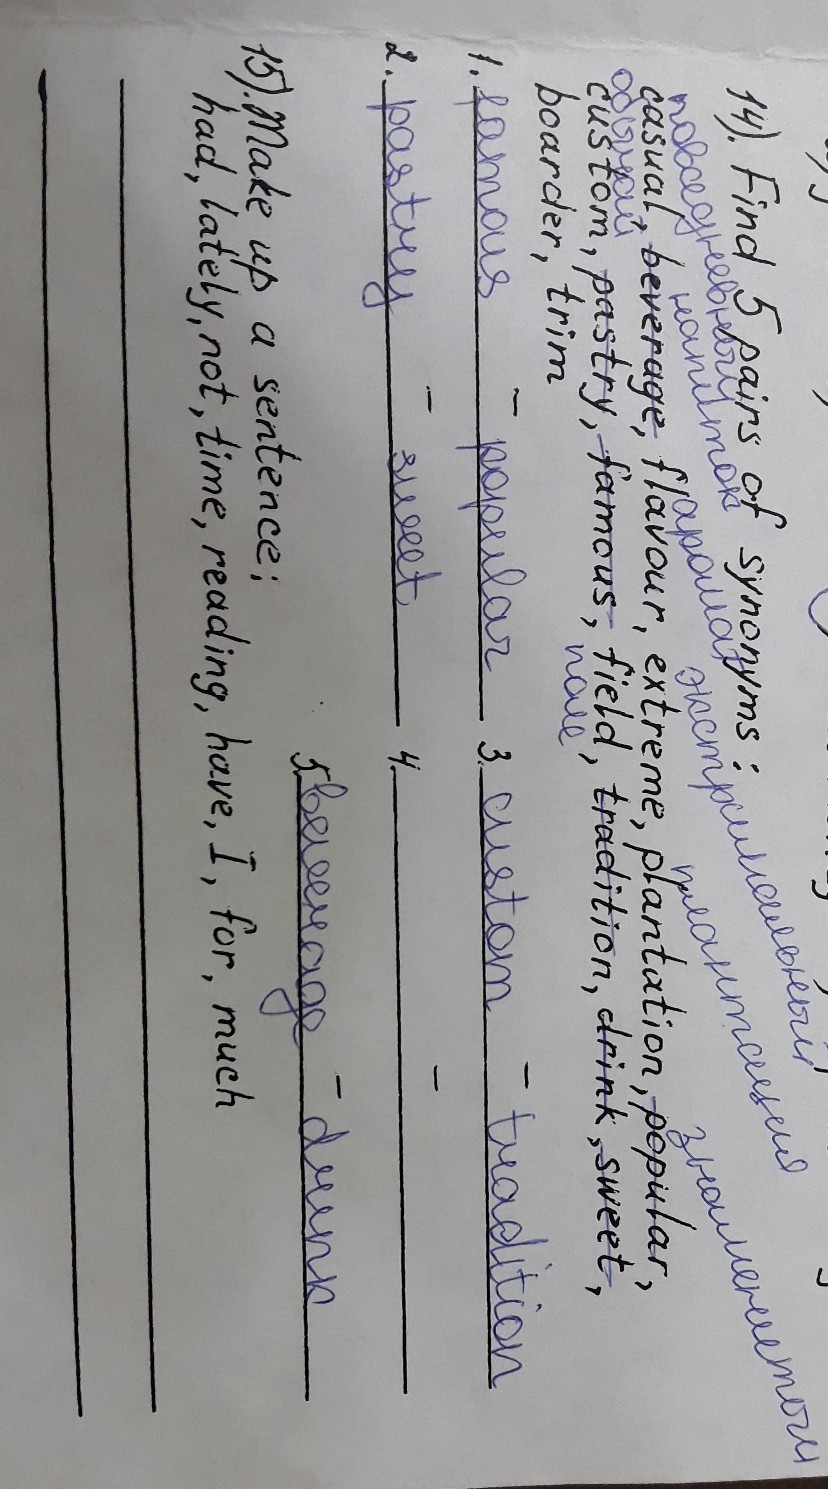 14). Find 5 pairs of synonyms:
повседневный напиток аромат экстримальный плантация знаменитый
casual, beverage, flavour, extreme, plantation, popular,
обычай
custom, pastry, famous, field, tradition, drink, sweet,
поле
boarder, trim
1. famous - popular 3. custom - tradition
2. pastry - sweet 4. -
5. beverage - drink
15). Make up a sentence:
had, lately, not, time, reading, have, I, for, much